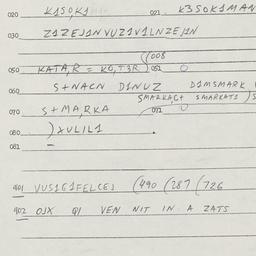 020 K1SO,K1 021 K3SOK1MAN
030 Z1ZEJ1N VUZ1V1LNZEJ1N
(008
050 KATA,R = KO,T3R) 051
060 S+NACN D1NUZ D1MSMARK
SMARKA,C+ SMARKATS
070 S+MA,RKA 072
080 )XUL1L1
081
401 VUS1G1FELCEJ (490 (287 (726
402 OJX QI VEN NIT IN A ZATS